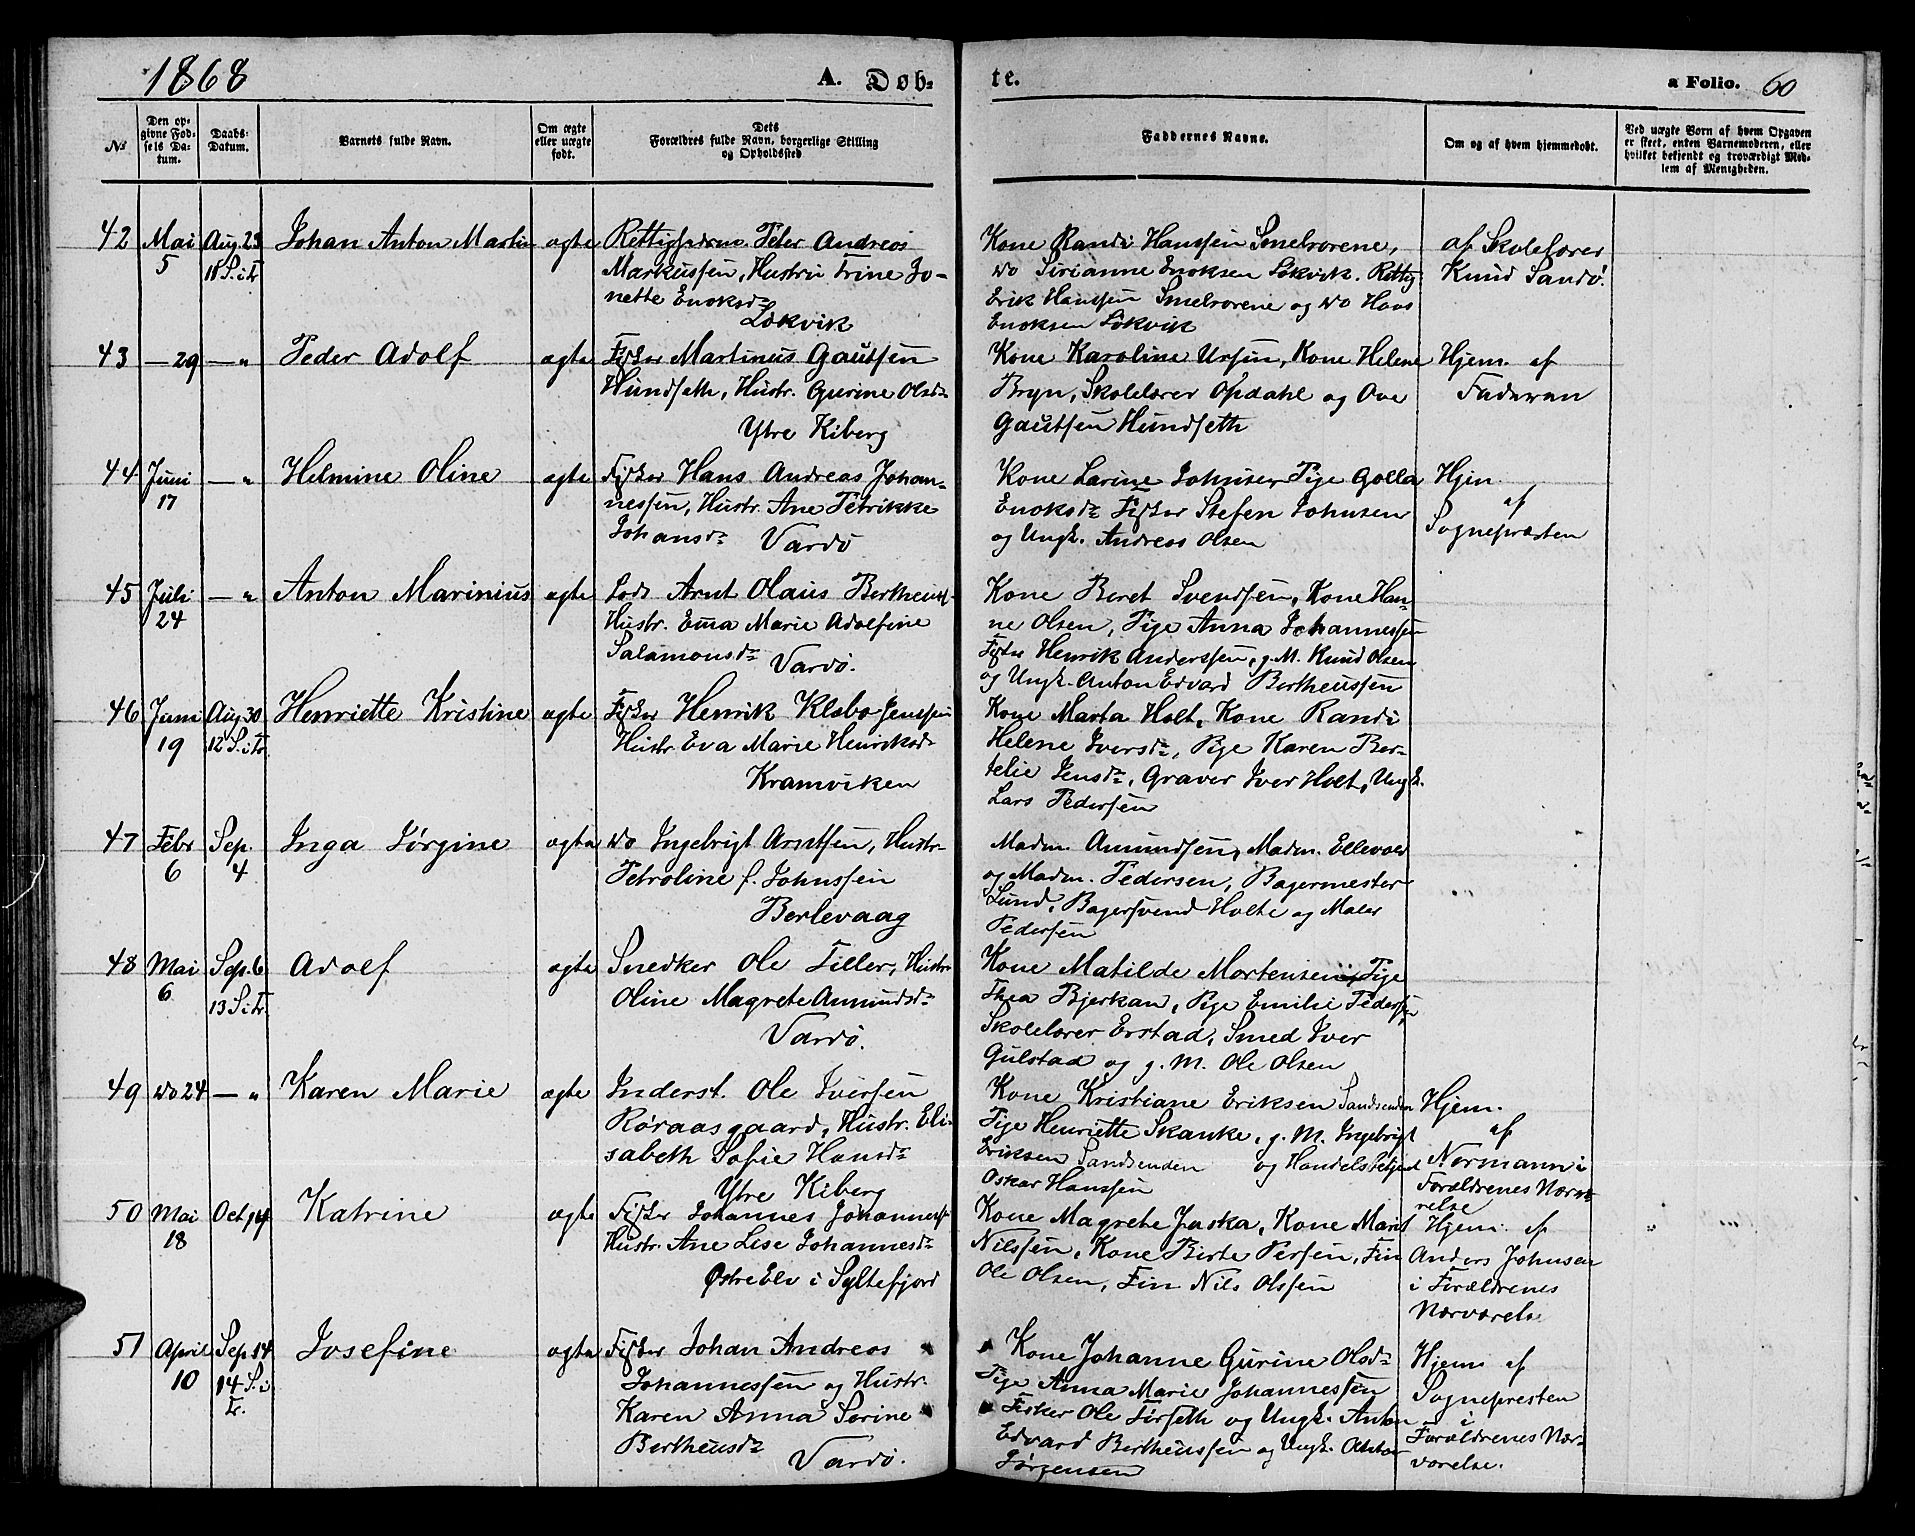 1868
A. Døb-
te.
a Folio. 60
No
Den op-
givne Fød-
sels Da-
tum.
Daabs-
Datum.
Barnets fulde Navn.
Om ægte
eller uægte
født.
Dets
Forældres fulde Navn, borgerlige Stilling
og Opholdssted
Faddernes Navne.
Om og af hvem hjemmedøbt.
Ved uægte Børn af hvem Opgaven
er skeet, enten Barnemoderen, eller
hvilket bekjendt og troværdigt Med-
lem af Menigheden.
42 Mai 5 Aug. 23 Johan Anton Martin ægte
11 S. i Tr.
Peter Andreas
Markussen, Hustru Trine Jo-
nette Enoksdr
Løkvik
Kone Randi Hanssen Smelrorene,
do Sirianne Enoksen Løkvik. Rettig.
Erik Hanssen Smelrorene og do Hans
Enoksen Løkvik
af Skolelærer
Knud Sandø.
43 — 29 — " Peder Adolf ægte
Fisker Martinus Gautsen
Hundseth, Hustr. Gurine Olsdr
Ytre Kiberg
Kone Karoline Ursin, Kone Helene
Bryn, Skolelærer Opdahl og Ove
Gautsen Hundseth
Hjem. af
Faderen
44 Juni 17 — " Helmine Oline ægte
Fisker Hans Andreas Johan-
nessen, Hustr. Ane Petrikke
Johansdr Vardø
Kone Larine Johnsen Pige Golla
Enoksdr Fisker Stefen Johnsen
og Ungk. Andreas Olsen
Hjem.
af
Sognepræsten
45 Juli 24 — " Anton Marinius ægte
Lods Arnt Olaus Bertheuss.
Hustr. Ema Marie Adolfine
Salamonsdr Vardø.
Kone Beret Svendsen, Kone Han-
ne Olsen, Pige Anna Johannessen
Fisker Henrik Anderssen, g. M. Knud Olsen
og Ungk. Anton Edvard Bertheussen
46 Juni 19 Aug 30 Henriette Kristine ægte
12 S. i Tr.
Fisker Henrik Klæbo Jenssen
Hustr. Eva Marie Henriksdr
Kramviken
Kone Marta Holt, Kone Randi
Helene Iversdr, Pige Karen Ber-
telie Jensdr, Graver Iver Holt, Ungk.
Lars Pedersen
47 Febr 6 Sep. 4 Inga Jørgine ægte
do Ingebrigt Arntsen, Hustr.
Petroline f. Johnssen
Berlevaag
Madm. Amundsen, Madm. Ellevold
og Madm. Pedersen, Bagermester
Lund, Bagersvend Holte og Maler
Pedersen
48 Mai 6 Sep. 6 Adolf ægte
13 S. i Tr.
Snedker Ole Tiller, Hustr.
Oline Magrete Amundsdr
Vardø.
Kone Matilde Mortensen, Pige
Thea Bjerkan, Pige Emilie Pedersen
Skolelærer Erstad, Smed Iver
Gulstad og g. M. Ole Olsen
49 do 24 — " Karen Marie ægte
Inderst. Ole Iversen
Røraasgaard, Hustr. Eli-
sabeth Sofie Hansdr
Ytre Kiberg
Kone Kristiane Eriksen Sandsenden
Pige Henriette Skanke, g. M. Ingebrigt
Eriksen Sandsenden og Handelsbetjent
Oskar Hanssen
Hjem.
af
Normann i
Forældrenes Nærvæ-
relse
50 Mai 18 Oct 14 Katrine ægte
Fisker Johannes Johanness.
Hustr. Ane Lise Johannesdr
Østre Elv i Syltefjord
Kone Magrete Juska, Kone Marit
Nilssen, Kone Birte Persen, Fin
Ole Olsen, Fin Nils Olssen
Hjem. af
Anders Johnsen
i Forældrenes
Nærværelse
51 April 10 Sep 14 Josefine ægte
14 S. i
Tr.
Fisker Johan Andreas
Johannessen og Hustr.
Karen Anna Serine
Bertheusdr Vardø.
Kone Johanne Gurine Olsdr
Pige Anna Marie Johannessen
Fisker Ole Forseth og Ungk. Anton
Edvard Bertheussen og Ungk. Anton
Jørgensen
Hjem af
Sognepresten
i
Forældrenes Nær-
værelse.